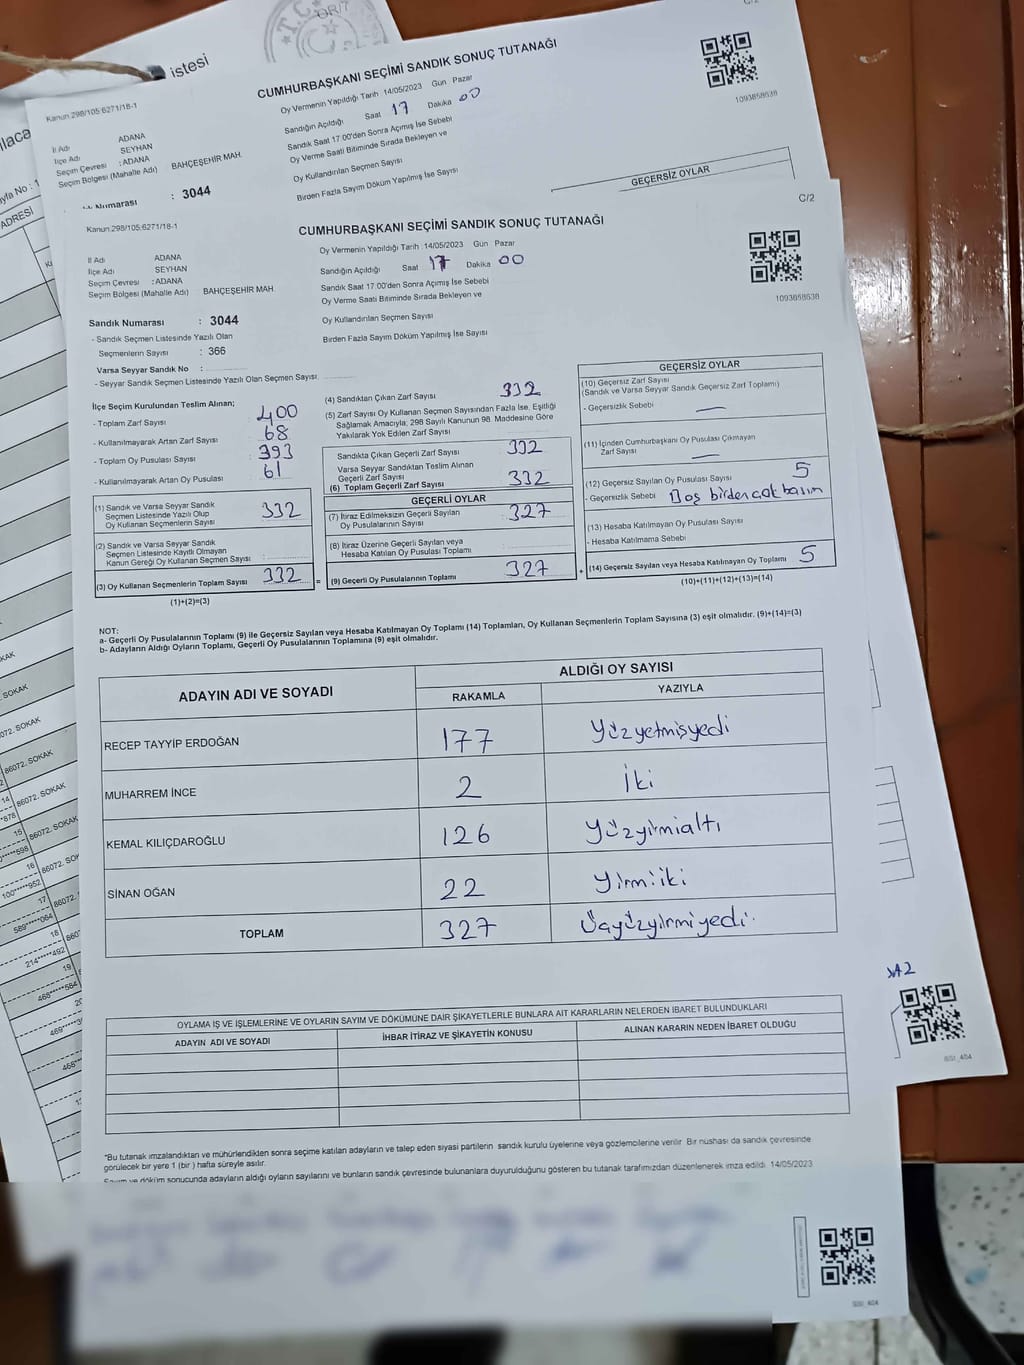 istesi
CUMHURBAŞKANI SEÇİMİ SANDIK SONUÇ TUTANAĞI
Kanun 298/105;6271/18-1
Oy Vermenin Yapıldığı Tarih 14/05/2023 Gün Pazar
Sandığın Açıldığı Saat 17 Dakika 00
Sandık Saat 17:00'den Sonra Açımış İse Sebebi
Oy Verme Saati Bitiminde Sırada Bekleyen ve
Oy Kullandırılan Seçmen Sayısı
Birden Fazla Sayım Döküm Yapılmış İse Sayısı
İl Adı ADANA
İlçe Adı SEYHAN
Seçim Çevresi : ADANA
Seçim Bölgesi (Mahalle Adı) BAHÇEŞEHİR MAH.
Numarası : 3044
1093858638
GEÇERSİZ OYLAR
C/2
Kanun 298/105;6271/18-1
CUMHURBAŞKANI SEÇİMİ SANDIK SONUÇ TUTANAĞI
İl Adı ADANA
İlçe Adı SEYHAN
Seçim Çevresi : ADANA
Seçim Bölgesi (Mahalle Adı) BAHÇEŞEHİR MAH.
Oy Vermenin Yapıldığı Tarih 14/05/2023 Gün Pazar
Sandığın Açıldığı Saat 17 Dakika 00
Sandık Saat 17:00'den Sonra Açımış İse Sebebi
Oy Verme Saati Bitiminde Sırada Bekleyen ve
Oy Kullandırılan Seçmen Sayısı
Birden Fazla Sayım Döküm Yapılmış İse Sayısı
1093858638
Sandık Numarası : 3044
- Sandık Seçmen Listesinde Yazılı Olan
Seçmenlerin Sayısı : 366
Varsa Seyyar Sandık No :
- Seyyar Sandık Seçmen Listesinde Yazılı Olan Seçmen Sayısı:
İlçe Seçim Kurulundan Teslim Alınan;
- Toplam Zarf Sayısı 400
- Kullanılmayarak Artan Zarf Sayısı 68
- Toplam Oy Pusulası Sayısı 393
- Kullanılmayarak Artan Oy Pusulası 61
(1) Sandık ve Varsa Seyyar Sandık
Seçmen Listesinde Yazılı Olup
Oy Kullanan Seçmenlerin Sayısı 332
(2) Sandık ve Varsa Seyyar Sandık
Seçmen Listesinde Kayıtlı Olmayan
Kanun Gereği Oy Kullanan Seçmen Sayısı
(3) Oy Kullanan Seçmenlerin Toplam Sayısı 332 =
(1)+(2)=(3)
(4) Sandıktan Çıkan Zarf Sayısı 332
(5) Zarf Sayısı Oy Kullanan Seçmen Sayısından Fazla İse, Eşitliği
Sağlamak Amacıyla; 298 Sayılı Kanunun 98. Maddesine Göre
Yakılarak Yok Edilen Zarf Sayısı
Sandıkta Çıkan Geçerli Zarf Sayısı 332
Varsa Seyyar Sandıktan Teslim Alınan
Geçerli Zarf Sayısı
(6) Toplam Geçerli Zarf Sayısı 332
GEÇERLİ OYLAR
(7) İtiraz Edilmeksizin Geçerli Sayılan
Oy Pusulalarının Sayısı 327
(8) İtiraz Üzerine Geçerli Sayılan veya
Hesaba Katılan Oy Pusulası Toplamı
(9) Geçerli Oy Pusulalarının Toplamı 327 +
GEÇERSİZ OYLAR
(10) Geçersiz Zarf Sayısı
(Sandık ve Varsa Seyyar Sandık Geçersiz Zarf Toplamı)
- Geçersizlik Sebebi —
(11) İçinden Cumhurbaşkanı Oy Pusulası Çıkmayan
Zarf Sayısı —
(12) Geçersiz Sayılan Oy Pusulası Sayısı 5
- Geçersizlik Sebebi birden çok basım
(13) Hesaba Katılmayan Oy Pusulası Sayısı
- Hesaba Katılmama Sebebi
(14) Geçersiz Sayılan veya Hesaba Katılmayan Oy Toplamı 5
(10)+(11)+(12)+(13)=(14)
NOT:
a- Geçerli Oy Pusulalarının Toplamı (9) ile Geçersiz Sayılan veya Hesaba Katılmayan Oy Toplamı (14) Toplamları, Oy Kullanan Seçmenlerin Toplam Sayısına (3) eşit olmalıdır. (9)+(14)=(3)
b- Adayların Aldığı Oyların Toplamı, Geçerli Oy Pusulalarının Toplamına (9) eşit olmalıdır.
ADAYIN ADI VE SOYADI ALDIĞI OY SAYISI
RAKAMLA YAZIYLA
RECEP TAYYİP ERDOĞAN 177 Yüzyetmişyedi
MUHARREM İNCE 2 İki
KEMAL KILIÇDAROĞLU 126 Yüzyirmialtı
SİNAN OĞAN 22 Yirmiiki
TOPLAM 327 Üçyüzyirmiyedi
OYLAMA İŞ VE İŞLEMLERİNE VE OYLARIN SAYIM VE DÖKÜMÜNE DAİR ŞİKAYETLERLE BUNLARA AİT KARARLARIN NELERDEN İBARET BULUNDUKLARI
ADAYIN ADI VE SOYADI İHBAR İTİRAZ VE ŞİKAYETİN KONUSU ALINAN KARARIN NEDEN İBARET OLDUĞU
*Bu tutanak imzalandıktan ve mühürlendikten sonra seçime katılan adayların ve talep eden siyasi partilerin sandık kurulu üyelerine veya gözlemcilerine verilir. Bir nüshası da sandık çevresinde
görülecek bir yere 1 (bir) hafta süreyle asılır.
Sayım ve döküm sonucunda adayların aldığı oyların sayılarını ve bunların sandık çevresinde bulunanlara duyurulduğunu gösteren bu tutanak tarafımızdan düzenlenerek imza edildi. 14/05/2023